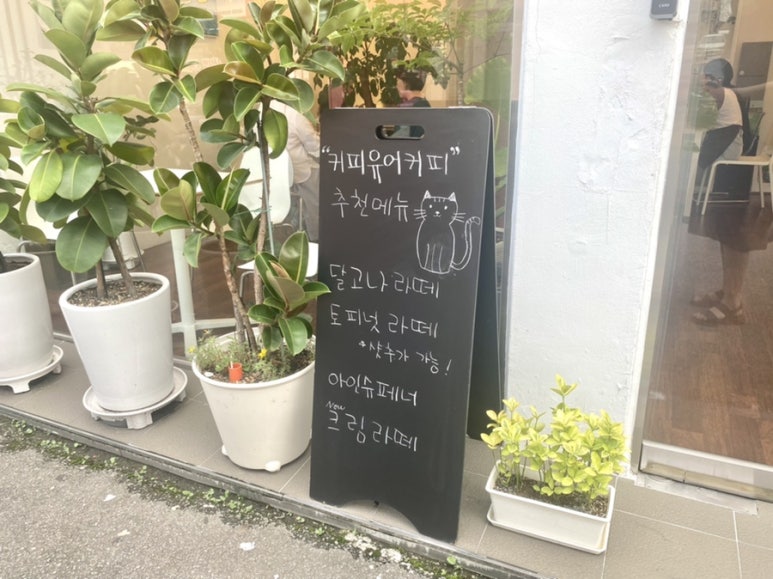 "커피유어커피"
추천메뉴
달고나 라떼
토피넛 라떼
*샷추가 가능!
아인슈페너
New
크림라떼